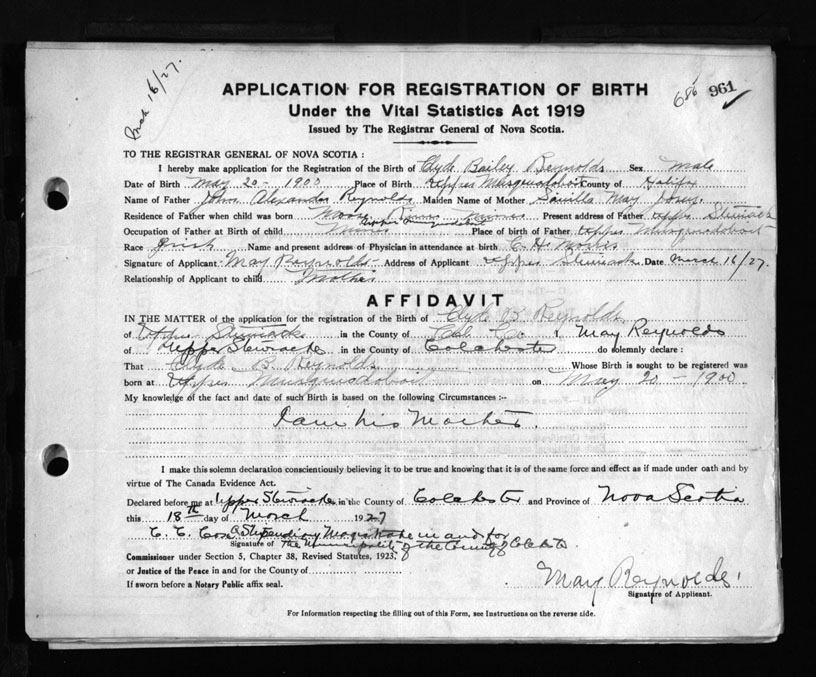 March 16/27.
686 961
APPLICATION FOR REGISTRATION OF BIRTH
Under the Vital Statistics Act 1919
Issued by The Registrar General of Nova Scotia.
TO THE REGISTRAR GENERAL OF NOVA SCOTIA :
I hereby make application for the Registration of the Birth of Clyde Bailey Reynolds Sex Male
Date of Birth May 20 - 1900 Place of Birth Upper Musquodoboit County of Halifax
Name of Father John Alexander Reynolds Maiden Name of Mother May
Residence of Father when child was born Moose Present address of Father Upper Stewiacke
Occupation of Father at Birth of child Miner Place of birth of Father Upper Musquodoboit
Race Irish Name and present address of Physician in attendance at birth C. H.
Signature of Applicant May Reynolds Address of Applicant Upper Stewiacke Date March 16/27.
Relationship of Applicant to child Mother
AFFIDAVIT
IN THE MATTER of the application for the registration of the Birth of Clyde B Reynolds
of Upper Stewiacke in the County of Col. Co I May Reynolds
of Upper Stewiacke in the County of Colchester do solemnly declare :
That Clyde B. Reynolds Whose Birth is sought to be registered was
born at Upper Musquodoboit on May 20 - 1900
My knowledge of the fact and date of such Birth is based on the following Circumstances :-
I am his Mother.
I make this solemn declaration conscientiously believing it to be true and knowing that it is of the same force and effect as if made under oath and by
virtue of The Canada Evidence Act.
Declared before me at Upper Stewiacke in the County of Colchester and Province of Nova Scotia
this 18th day of March 1927
C. E. Cox Stipendiary Magistrate in and for
Signature of The Municipality of the County of Colchester
Commissioner under Section 5, Chapter 38, Revised Statutes, 1923,
or Justice of the Peace in and for the County of
If sworn before a Notary Public affix seal.
May Reynolds
Signature of Applicant.
For Information respecting the filling out of this Form, see Instructions on the reverse side.